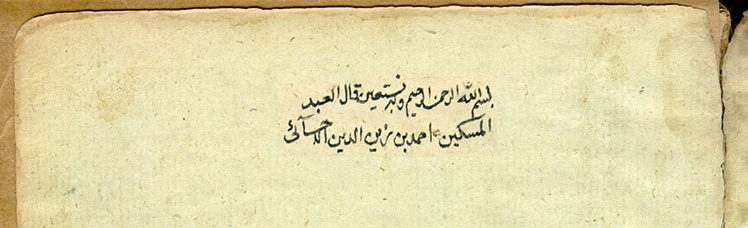 بسم الله الرحمن الرحيم وبه نستعين قال العبد
المسكين احمد بن زين الدين الاحسائي